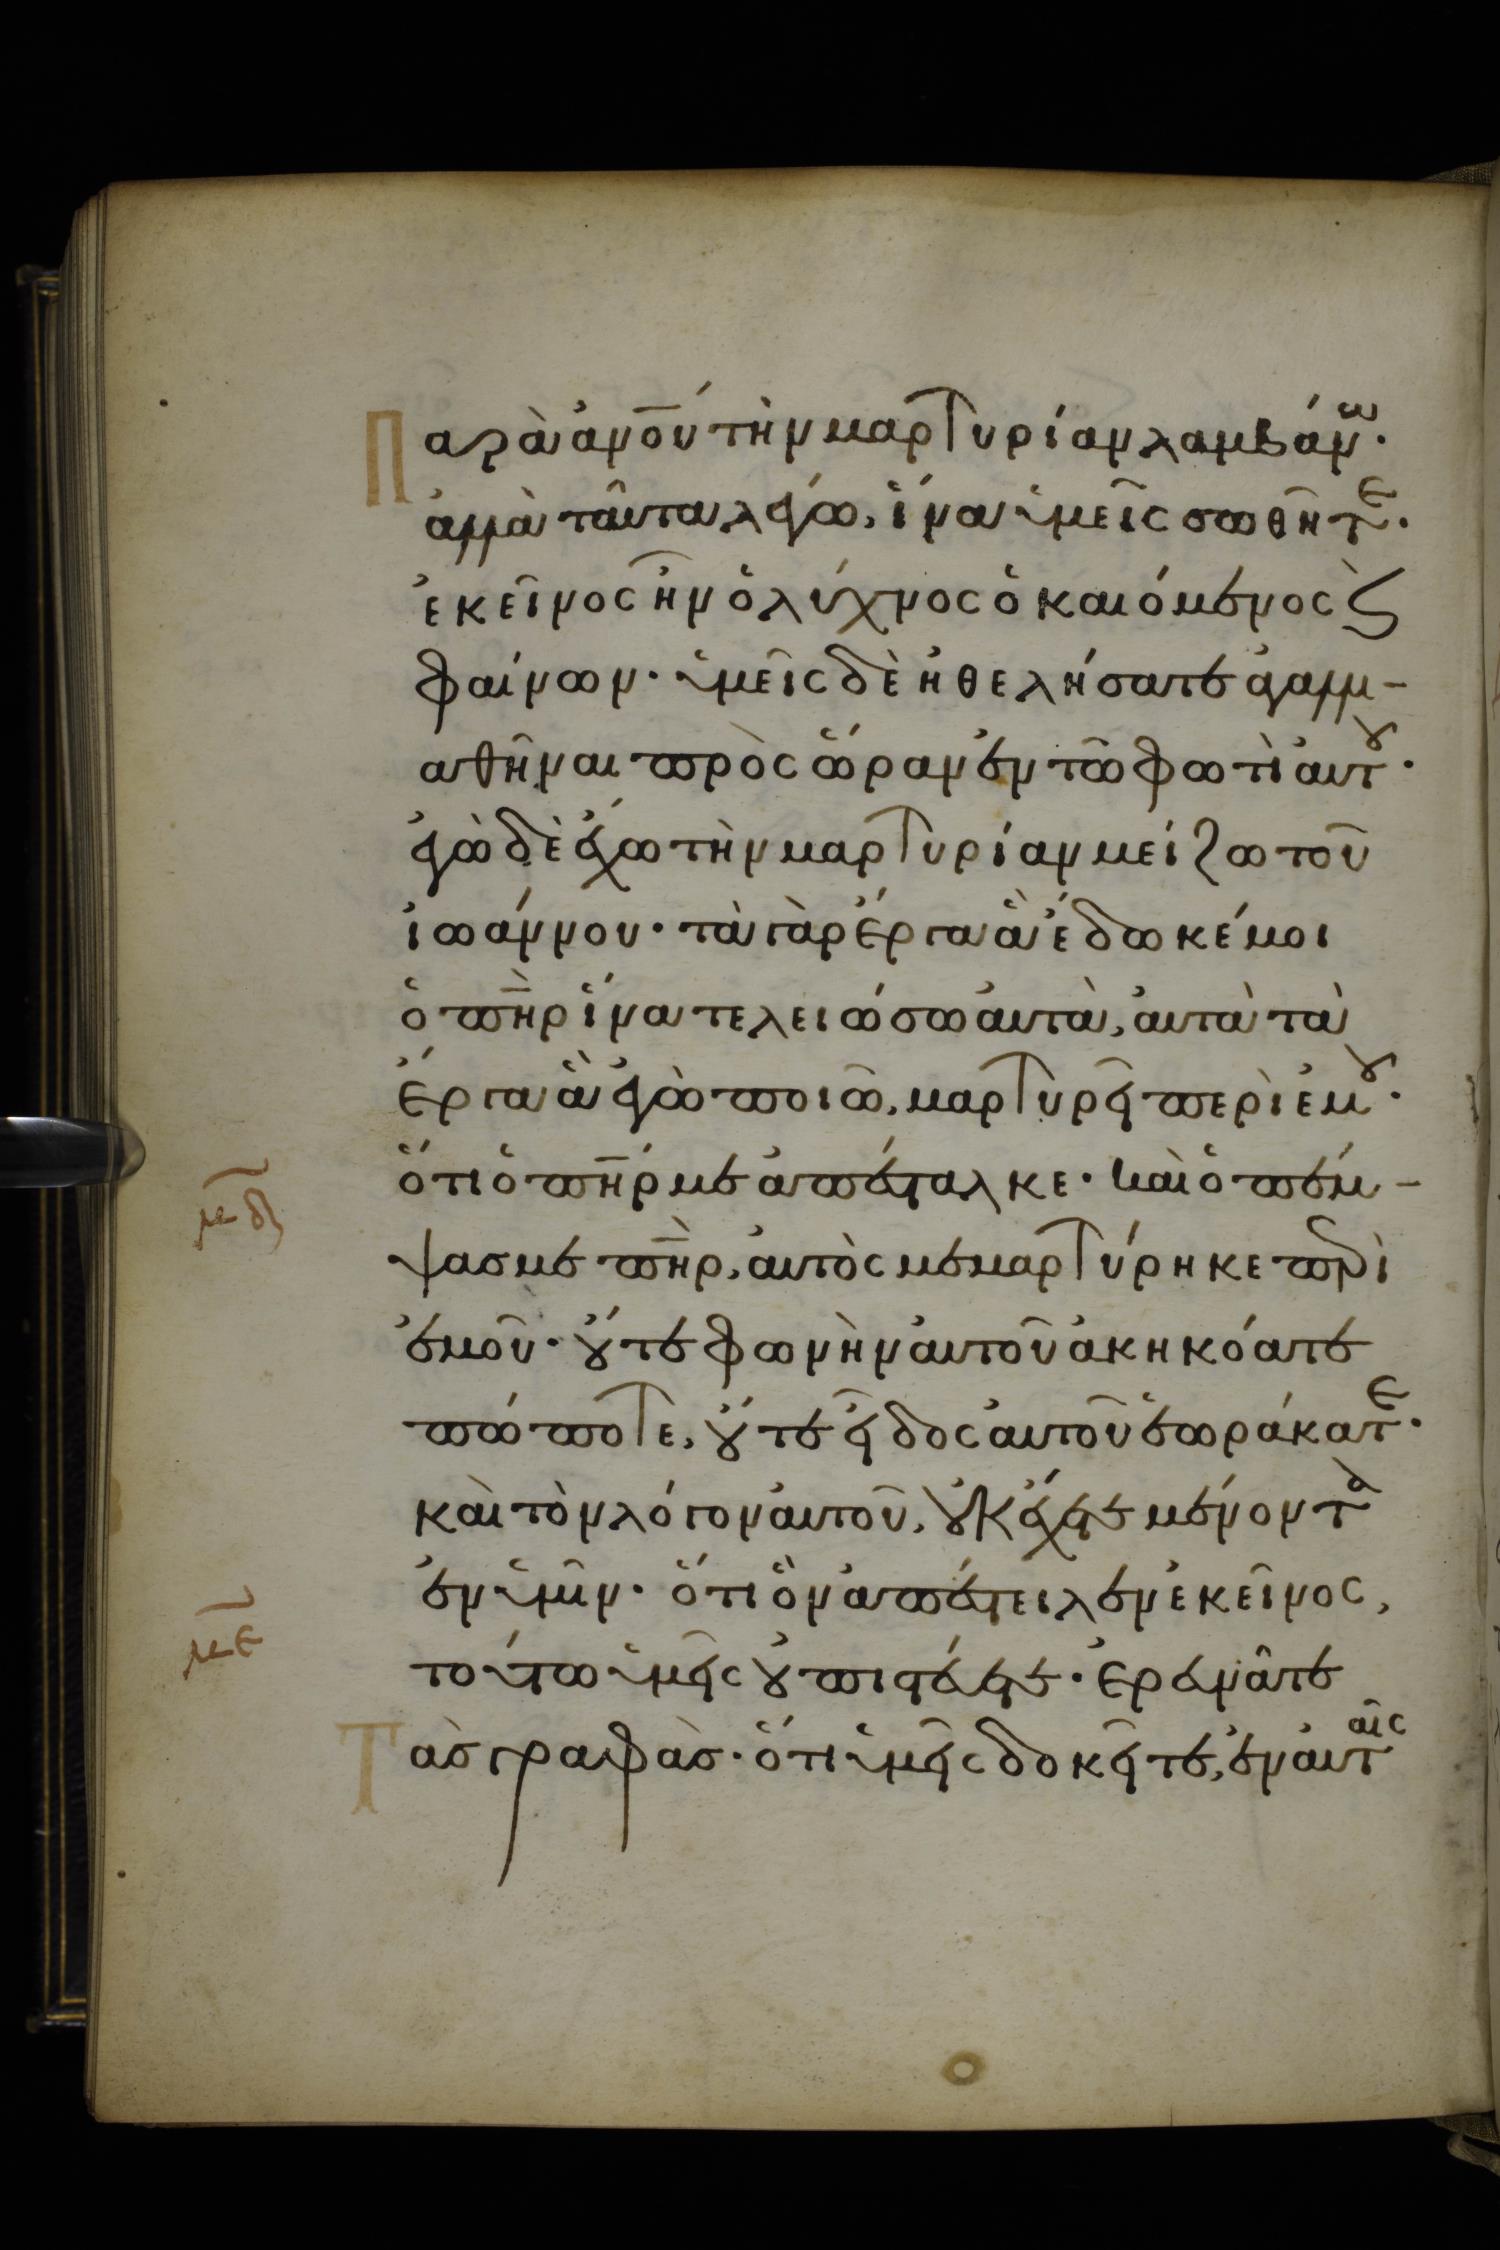 Παρὰ ἀνου τὴν μαρτυρίαν λαμβάνω·
ἀλλὰ ταῦτα λέγω, ἵνα ὑμεῖς σωθῆτε·
ἐκεῖνος ἦν ὁ λύχνος ὁ καιόμενος ϗ
φαίνων· ὑμεῖς δὲ ἠθελήσατε ἀγαλλι-
αθῆναι πρὸς ὥραν ἐν τῶ φωτὶ αὐτοῦ·
ἐγὼ δὲ ἔχω τὴν μαρτυρίαν μείζω τοῦ
ἰωάννου· τὰ γὰρ ἔργα ἃ ἔδωκέ μοι
ὁ πηρ ἵνα τελειώσω αὐτὰ, αὐτὰ τὰ
ἔργα ἃ ἐγὼ ποιῶ, μαρτυρεῖ περὶ ἐμοῦ·
ὅτι ὁ πηρ με ἀπέσταλκε· καὶ ὁ πέμ-
ψας με πηρ, αὐτὸς μεμαρτύρηκε περὶ
ἐμοῦ· οὔτε φωνὴν αὐτοῦ ἀκηκόατε
πώποτε, οὔτε εἶδος αὐτοῦ ἑωράκατε·
καὶ τὸν λόγον αὐτοῦ, οὐκ ἔχετε μένοντα
ἐν ὑμῖν· ὅτι ὃν ἀπέστειλεν ἐκεῖνος,
τούτω ὑμεῖς οὐ πιστεύετε· ἐρευνᾶτε
Τὰς γραφὰς· ὅτι ὑμεῖς δοκεῖτε, ἐν αὐταῖς
μδ
με